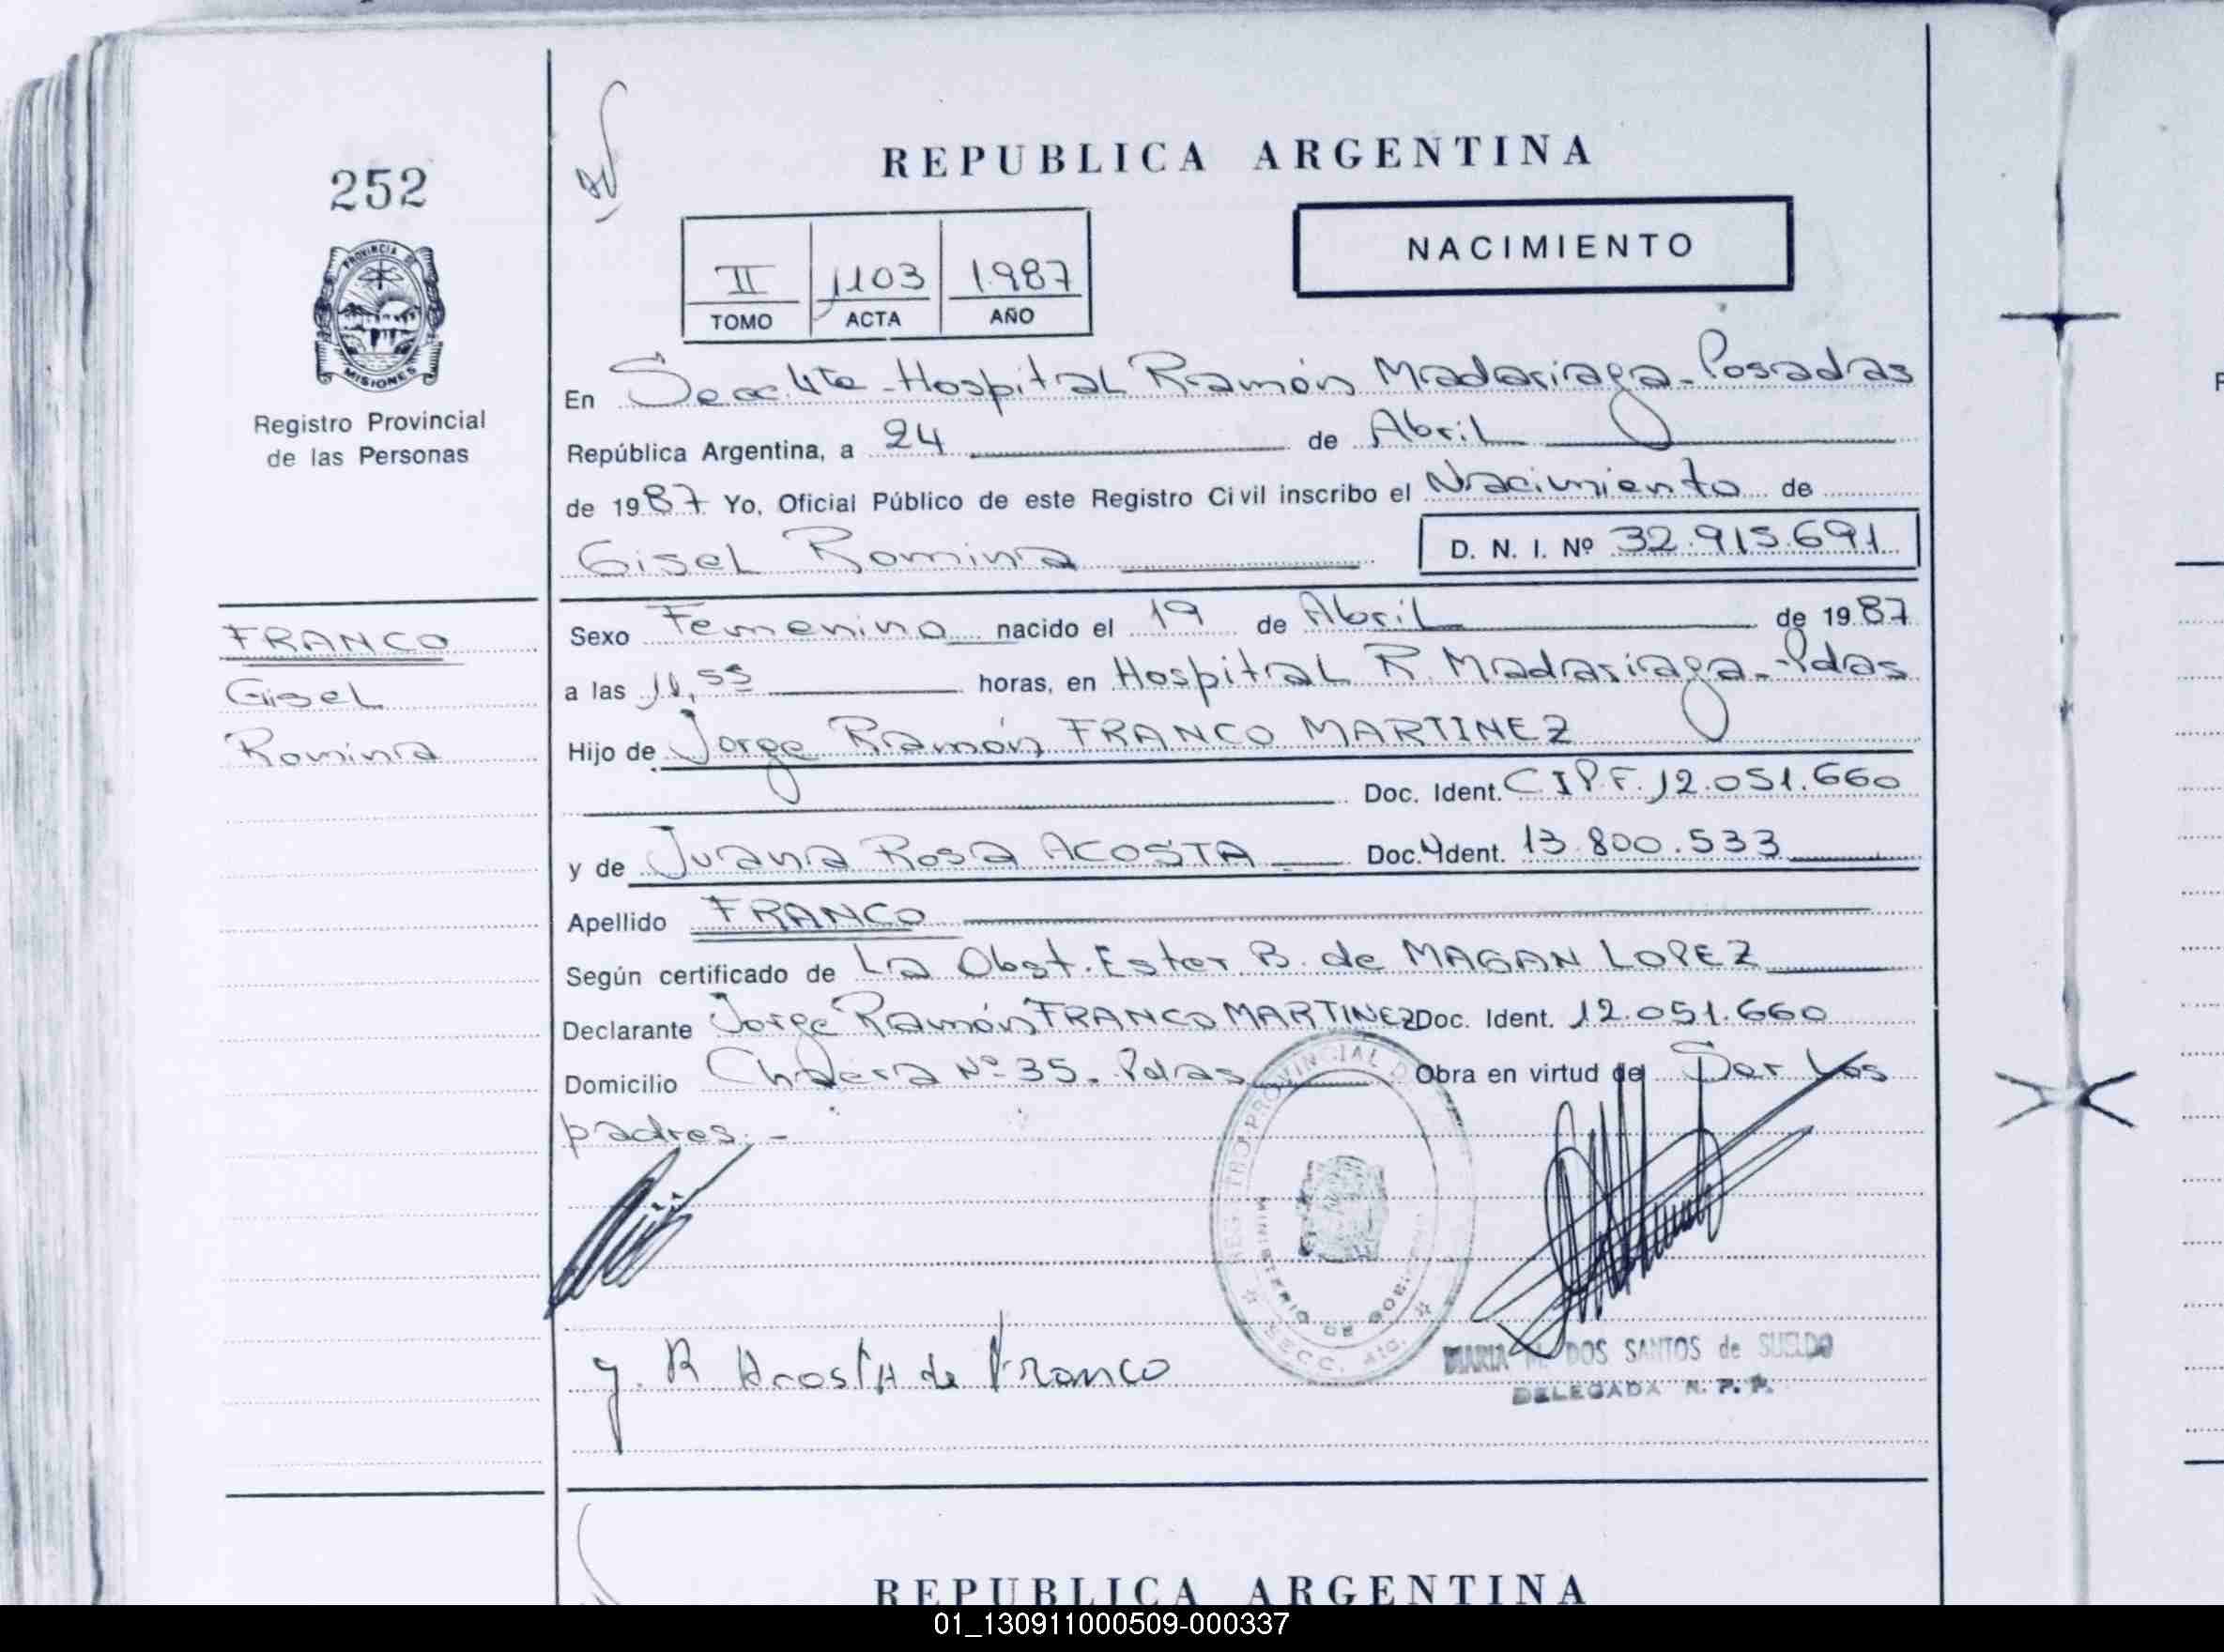 252
PROVINCIA DE
MISIONES
Registro Provincial
de las Personas
FRANCO
Gisel
Romina
REPUBLICA ARGENTINA
II 1103 1987
TOMO ACTA AÑO
NACIMIENTO
En Secc. 4ta - Hospital Ramón Madariaga - Posadas
República Argentina, a 24 de Abril
de 1987 Yo, Oficial Público de este Registro Civil inscribo el Nacimiento de
Gisel Romina D. N. I. Nº 32.915.691
Sexo Femenino nacido el 19 de Abril de 1987
a las 11,55 horas, en Hospital R. Madariaga - Pdas
Hijo de Jorge Ramón FRANCO MARTINEZ
Doc. Ident. C I P.F. 12.051.660
y de Juana Rosa ACOSTA Doc. Ident. 13.800.533
Apellido FRANCO
Según certificado de La Obst. Ester B. de MAGAN LOPEZ
Declarante Jorge Ramón FRANCO MARTINEZ Doc. Ident. 12.051.660
Domicilio Chacra Nº 35. Pdas Obra en virtud de Ser los
padres. -
REGISTRO PROVINCIAL D
MINISTERIO DE GOBIERNO
SECC. 4ta.
J. R Acosta de Franco
MARIA M. DOS SANTOS de SUELDO
DELEGADA R. P. P.
REPUBLICA ARGENTINA
01_130911000509-000337